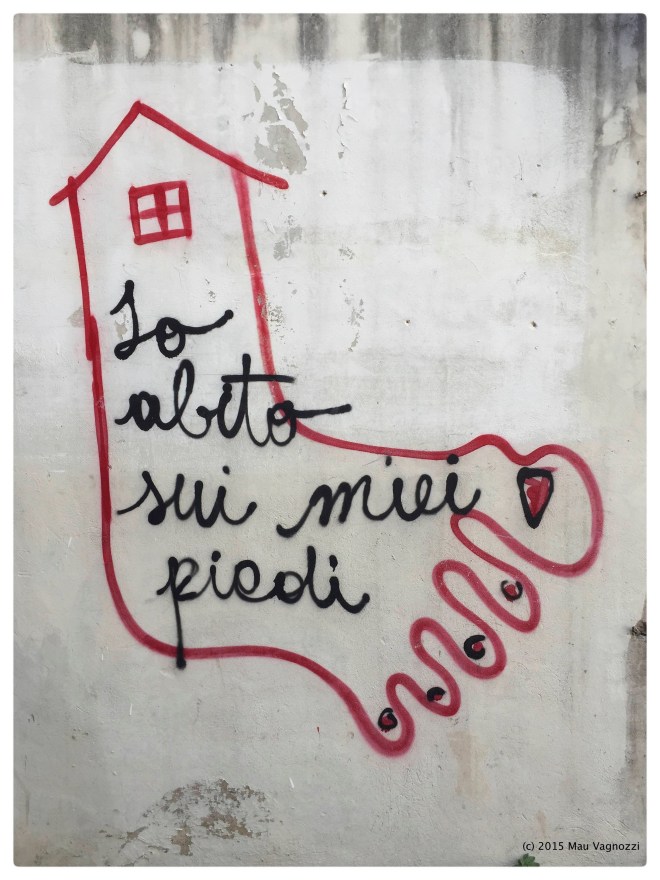 Io
abito
sui miei
piedi
(c) 2015 Mau Vagnozzi